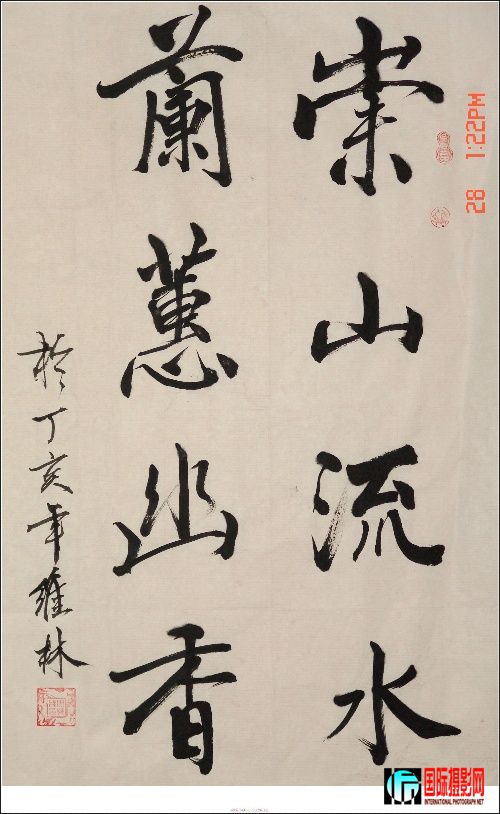 崇山流水
蘭蕙幽香
於丁亥年維林
28 1:22PM
国际摄影网
INTERNATIONAL PHOTOGRAPH.NET